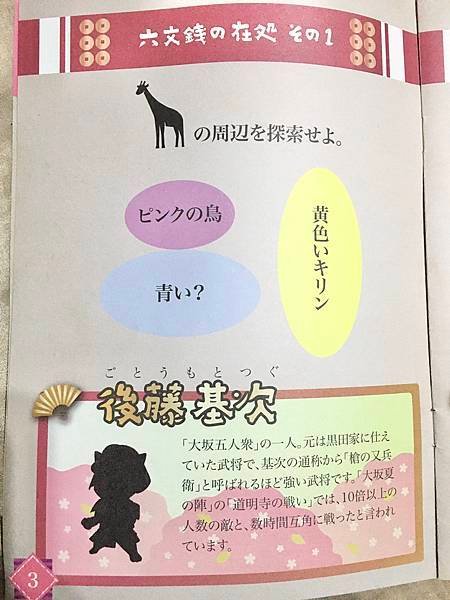 六文銭の在処 その1
の周辺を探索せよ。
ピンクの鳥
黄色いキリン
青い？
ごとうもとつぐ
後藤基次
「大坂五人衆」の一人。元は黒田家に仕え
ていた武将で、基次の通称から「槍の又兵
衛」と呼ばれるほど強い武将です。「大坂夏
の陣」の「道明寺の戦い」では、10倍以上の
人数の敵と、数時間互角に戦ったと言われ
ています。
3